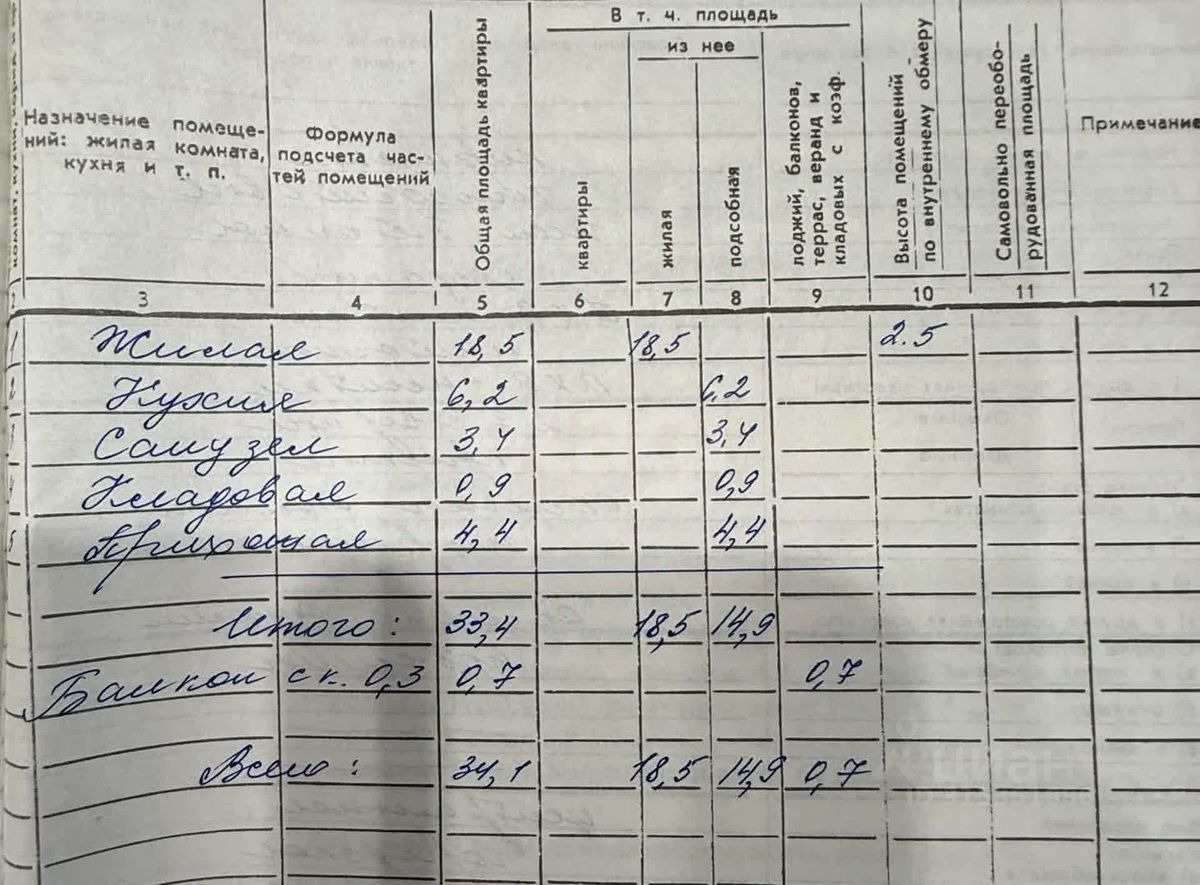 В т. ч. площадь
из нее
Назначение помеще-
ний: жилая комната,
кухня и т. п.
Формула
подсчета час-
тей помещений
Общая площадь квартиры
квартиры
жилая
подсобная
лоджий, балконов,
террас, веранд и
кладовых с коэф.
Высота помещений
по внутреннему обмеру
Самовольно переобо-
рудованная площадь
Примечание
2 3 4 5 6 7 8 9 10 11 12
1 Жилая 18,5 18,5 2.5
2 Кухня 6,2 6,2
Санузел 3,4 3,4
4 Кладовая 0,9 0,9
5 Прихожая 4,4 4,4
Итого: 33,4 18,5 14,9
Балкон с к. 0,3 0,7 0,7
Всего: 34,1 18,5 14,9 0,7
циан